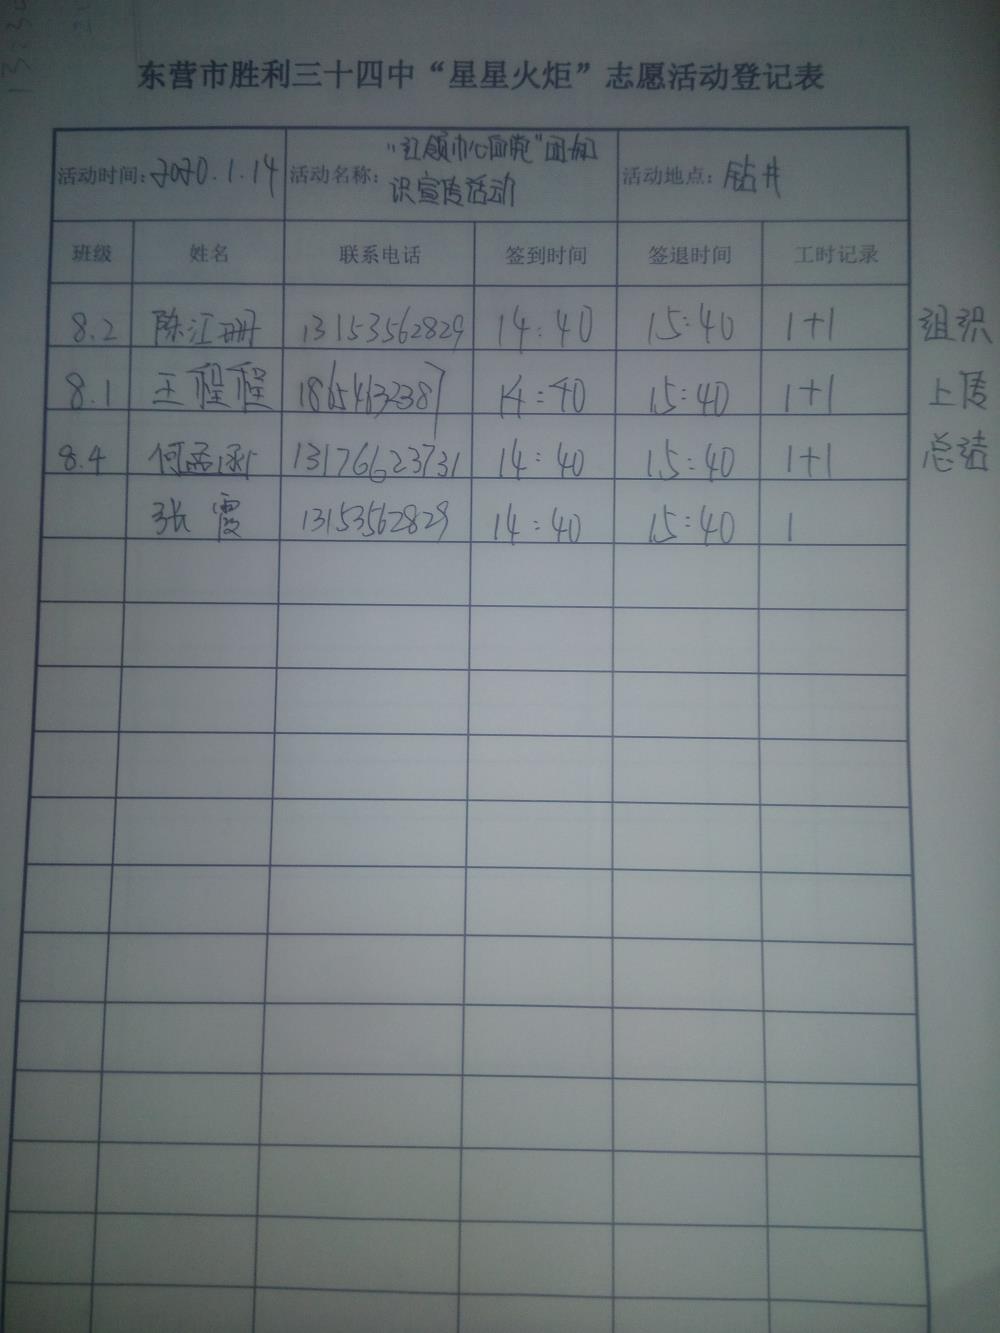 东营市胜利三十四中“星星火炬”志愿活动登记表
活动时间：2020.1.14 活动名称：“红领巾心向党”团知识宣传活动 活动地点：钻井
班级 姓名 联系电话 签到时间 签退时间 工时记录
8.2 陈江珊 13153562829 14:40 15:40 1+1 组织
8.1 王程程 18654632387 14:40 15:40 1+1 上传
8.4 何孟 13176623731 14:40 15:40 1+1 总结
张霞 13153562829 14:40 15:40 1